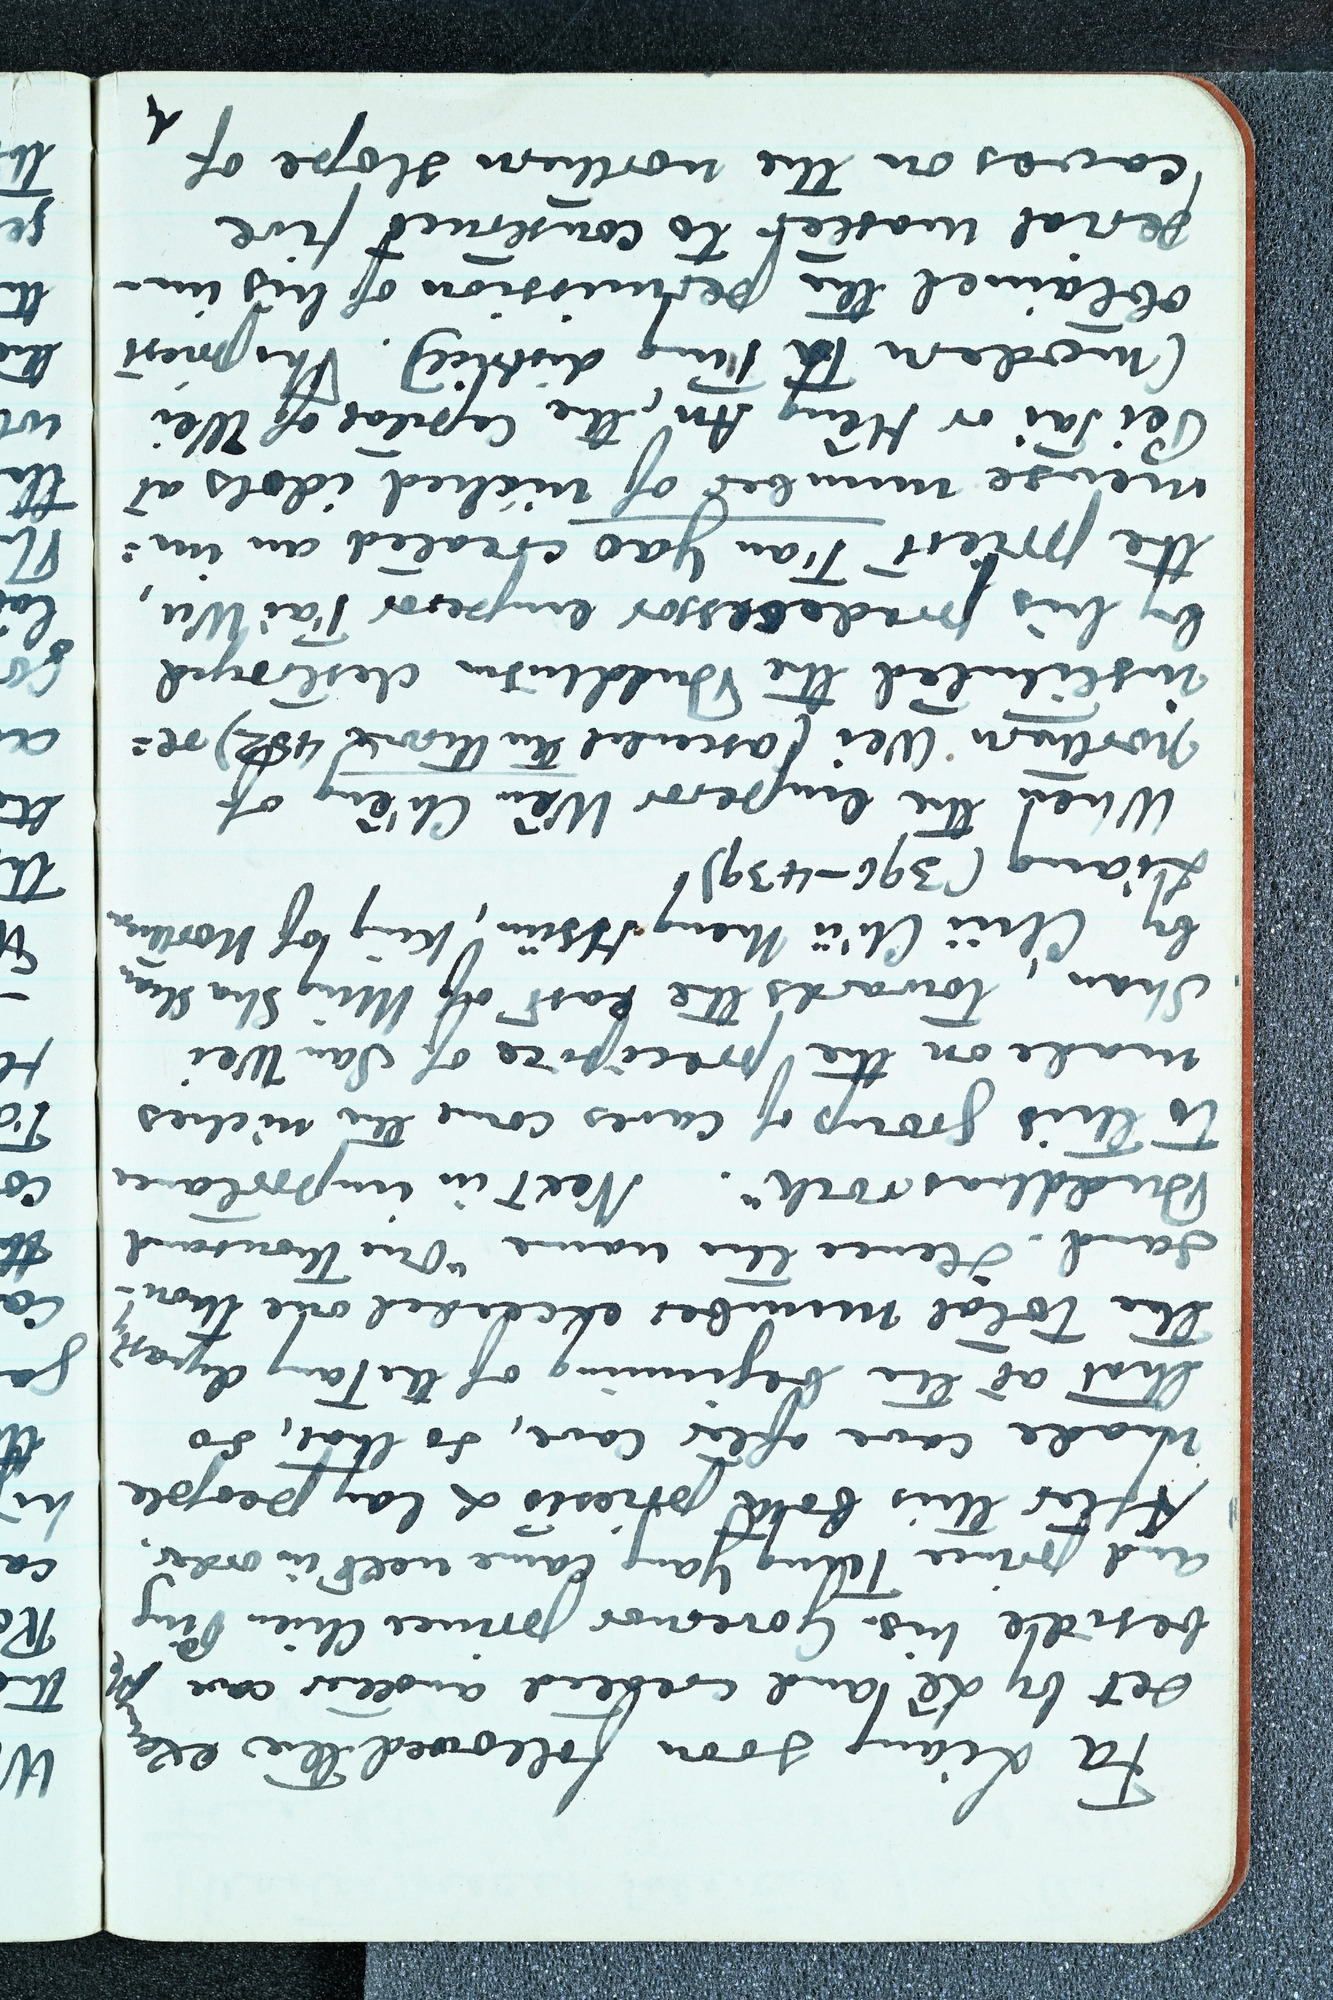 Fa Liang soon followed the exam
set by Lê and created another cave
beside his. Governor prince Chien Ping
and prince Tung Yang came next in order.
After this both priests & lay people
made cave after cave, so that, so
that at the beginning of the Tang dynasty
the total number exceeded one thou-
sand. Hence the name "One thousand
Buddhas rock". Next in importance
to this group of caves come the niches
made on the precipice of San Wei
Shan, towards the east of Ming Sha Shan
by Chü Ch'ü Meng Hsün, King of Northern
Liang (396-439)
When the emperor Wên Ch'êng of
northern Wei (ascended the throne 452) re=
instituted the Buddhism destroyed
by his predecessor emperor Tai Wu,
the priest Tan Yao created an im=
mense number of niched idols at
Pei Tai or Heng An, the capital of Wei
(modern Ta Tung district). This priest
obtained the permission of his im-
perial master to construct five
caves on the northern slope of